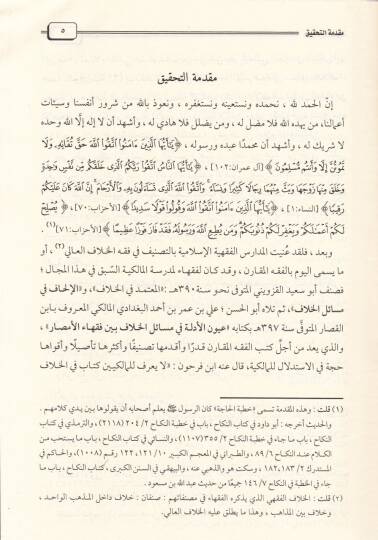 مقدمة التحقيق
٥
مقدمة التحقيق
إنّ الحمد لله ، نحمده ونستعينه ونستغفره ، ونعوذ بالله من شرور أنفسنا وسيئات
أعمالنا، من يهده الله فلا مضل له ، ومن يضلل فلا هادي له ، وأشهد أن لا إله إلَّا الله وحده
لا شريك له ، وأشهد أن محمدًا عبده ورسوله ، ﴿يَٰٓأَيُّهَا ٱلَّذِينَ ءَامَنُوا۟ ٱتَّقُوا۟ ٱللَّهَ حَقَّ تُقَاتِهِۦ وَلَا
تَمُوتُنَّ إِلَّا وَأَنتُم مُّسْلِمُونَ﴾ [آل عمران:١٠٢] ، ﴿يَٰٓأَيُّهَا ٱلنَّاسُ ٱتَّقُوا۟ رَبَّكُمُ ٱلَّذِى خَلَقَكُم مِّن نَّفْسٍ وَٰحِدَةٍ
وَخَلَقَ مِنْهَا زَوْجَهَا وَبَثَّ مِنْهُمَا رِجَالًا كَثِيرًا وَنِسَآءً ۚ وَٱتَّقُوا۟ ٱللَّهَ ٱلَّذِى تَسَآءَلُونَ بِهِۦ وَٱلْأَرْحَامَ ۚ إِنَّ ٱللَّهَ كَانَ عَلَيْكُمْ
رَقِيبًا﴾ [النساء:١] ، ﴿يَٰٓأَيُّهَا ٱلَّذِينَ ءَامَنُوا۟ ٱتَّقُوا۟ ٱللَّهَ وَقُولُوا۟ قَوْلًا سَدِيدًا﴾ [الأحزاب:٧٠]، ﴿يُصْلِحْ
لَكُمْ أَعْمَٰلَكُمْ وَيَغْفِرْ لَكُمْ ذُنُوبَكُمْ ۗ وَمَن يُطِعِ ٱللَّهَ وَرَسُولَهُۥ فَقَدْ فَازَ فَوْزًا عَظِيمًا﴾ [الأحزاب:٧١](١)
وبعد ، فلقد عُنيت المدارس الفقهية الإسلامية بالتصنيف في فقه الخلاف العالي(٢) ، أو
ما يسمى اليوم بالفقه المقارن ، وقد كان لفقهاء لمدرسة المالكية السّبق في هذا المجال ؛
فصنف أبو سعيد القزويني المتوفى نحو سنة ٣٩٠هـ :«المعتمد في الخلاف»، و«الإلحاف في
مسائل الخلاف»، ثم تلاه أبو الحسن ؛ علي بن عمر بن أحمد البغدادي المالكي المعروف بابن
القصار المتوفَّ سنة ٣٩٧هـ بكتابه «عيون الأدلة في مسائل الخلاف بين فقهاء الأمصار» ،
والذي يعد من أجلِّ كتب الفقه المقارن قدرًا وأقدمها تصنيفًا وأكثرها تأصيلًا وأقواها
حجة في الاستدلال للمالكية، قال عنه ابن فرحون : «لا يعرف للمالكيين كتاب في الخلاف
(١) قلت : وهذه المقدمة تسمى «خطبة الحاجة» كان الرسول ﷺ يعلم أصحابه أن يقولوها بين يدي كلامهم .
والحديث أخرجه : أبو داود في كتاب النكاح ، باب في خطبة النكاح ٢/ ٢٠٤ (٢١١٨)، والترمذي في كتاب
النكاح ، باب ما جاء في خطبة النكاح ٢/ ٣٥٥ (١١٠٧)، والنسائي في كتاب النكاح ، باب ما يستحب من
الكلام عند النكاح ٦/ ٨٩ ، والطبراني في المعجم الكبير ١٠/ ١٢١، ١٢٢ رقم (١٠٠٨)، والحاكم في
المستدرك ٢/ ١٨٢، ١٨٣ ، وسكت هو والذهبي عنه، والبيهقي في السنن الكبرى ، كتاب النكاح ، باب ما
جاء في خطبة النكاح ٧/ ١٤٦ جميعًا من حديث عبد الله بن مسعود .
(٢) قلت : الخلاف الفقهي الذي يذكره الفقهاء في مصنفاتهم : صنفان : خلاف داخل المذهب الواحد ،
وخلاف بين المذاهب ، وهذا ما يطلق عليه الخلاف العالي.